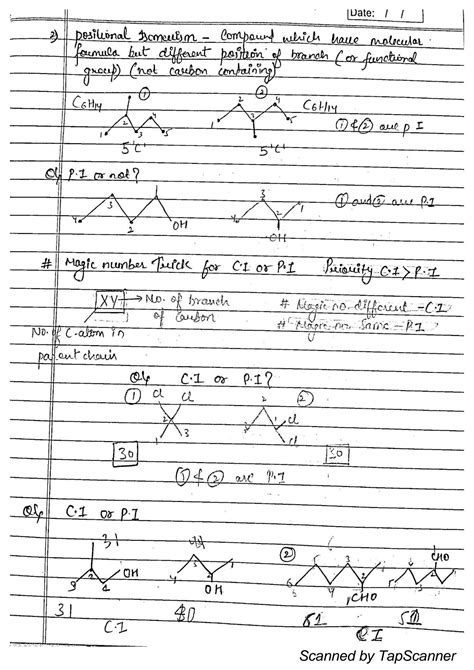 Date: / /
2) positional Isomerism - Compound which have molecular
formula but different position of branch (or functional
group) (not carbon containing)
① ②
C6H14 C6H14
1 2 3 4 5 1 2 3 4 5
① & ② are P I
5'C' 5'C'
Q/ P.I or not?
4 3 2 1 OH 4 3 2 1 OH
① and ② are P.I
# Magic number Trick for C.I or P.I Priority C.I > P.I
XY → No. of branch of Carbon
# Magic no. different - C.I
# Magic no. Same - P.I
No. of C.atom in
parent chain
Q/ C.I or P.I?
① Cl Cl ②
1 2 3 1 2 Cl Cl
30 30
① & ② are P.I
Q/ C.I or P.I
31 ②
3 2 1 OH 4 3 2 1 OH
6 5 4 3 2 1 CHO CHO
31 40 61 50
C.I C I
Scanned by TapScanner